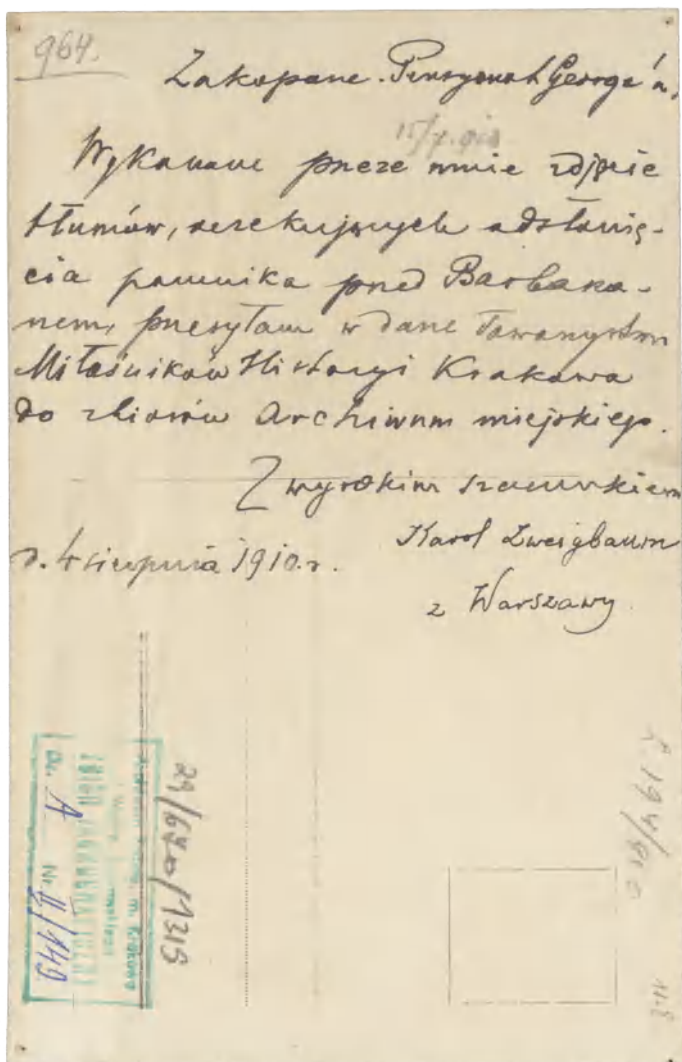 964.
Zakopane. Pensyonat George'a.
15/X. 910
Wykonane przeze mnie zdjęcie
tłumów, oczekujących odsłonię-
cia pomnika pred Barbaka-
nem, przesyłam w dane Towarzystwu
Miłośników Historyi Krakowa
do zbiorów Archiwum miejskiego.
Z wysokim szacunkiem
Karol Zweigbaum
z Warszawy
d. 4 sierpnia 1910.r.
m. Krakowa
ZBIÓR
Dz. A Nr. II/149
29/670/1315
L. 194/910